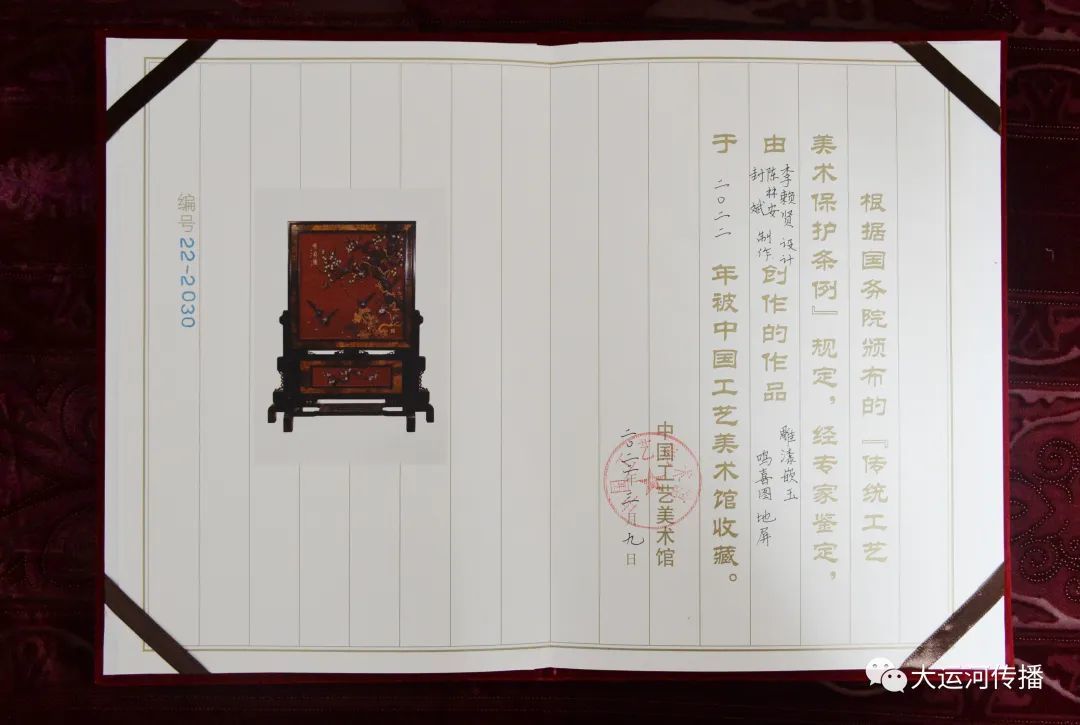 根据国务院颁布的『传统工艺
美术保护条例』规定，经专家鉴定，
由
李赖贤 设计
陈林安
封斌 制作
创作的作品
雕漆嵌玉
鸣喜图 地屏
于 二〇二二 年被中国工艺美术馆收藏。
中国工艺美术馆
二〇二二年三月九日
编号 22-2030
大运河传播